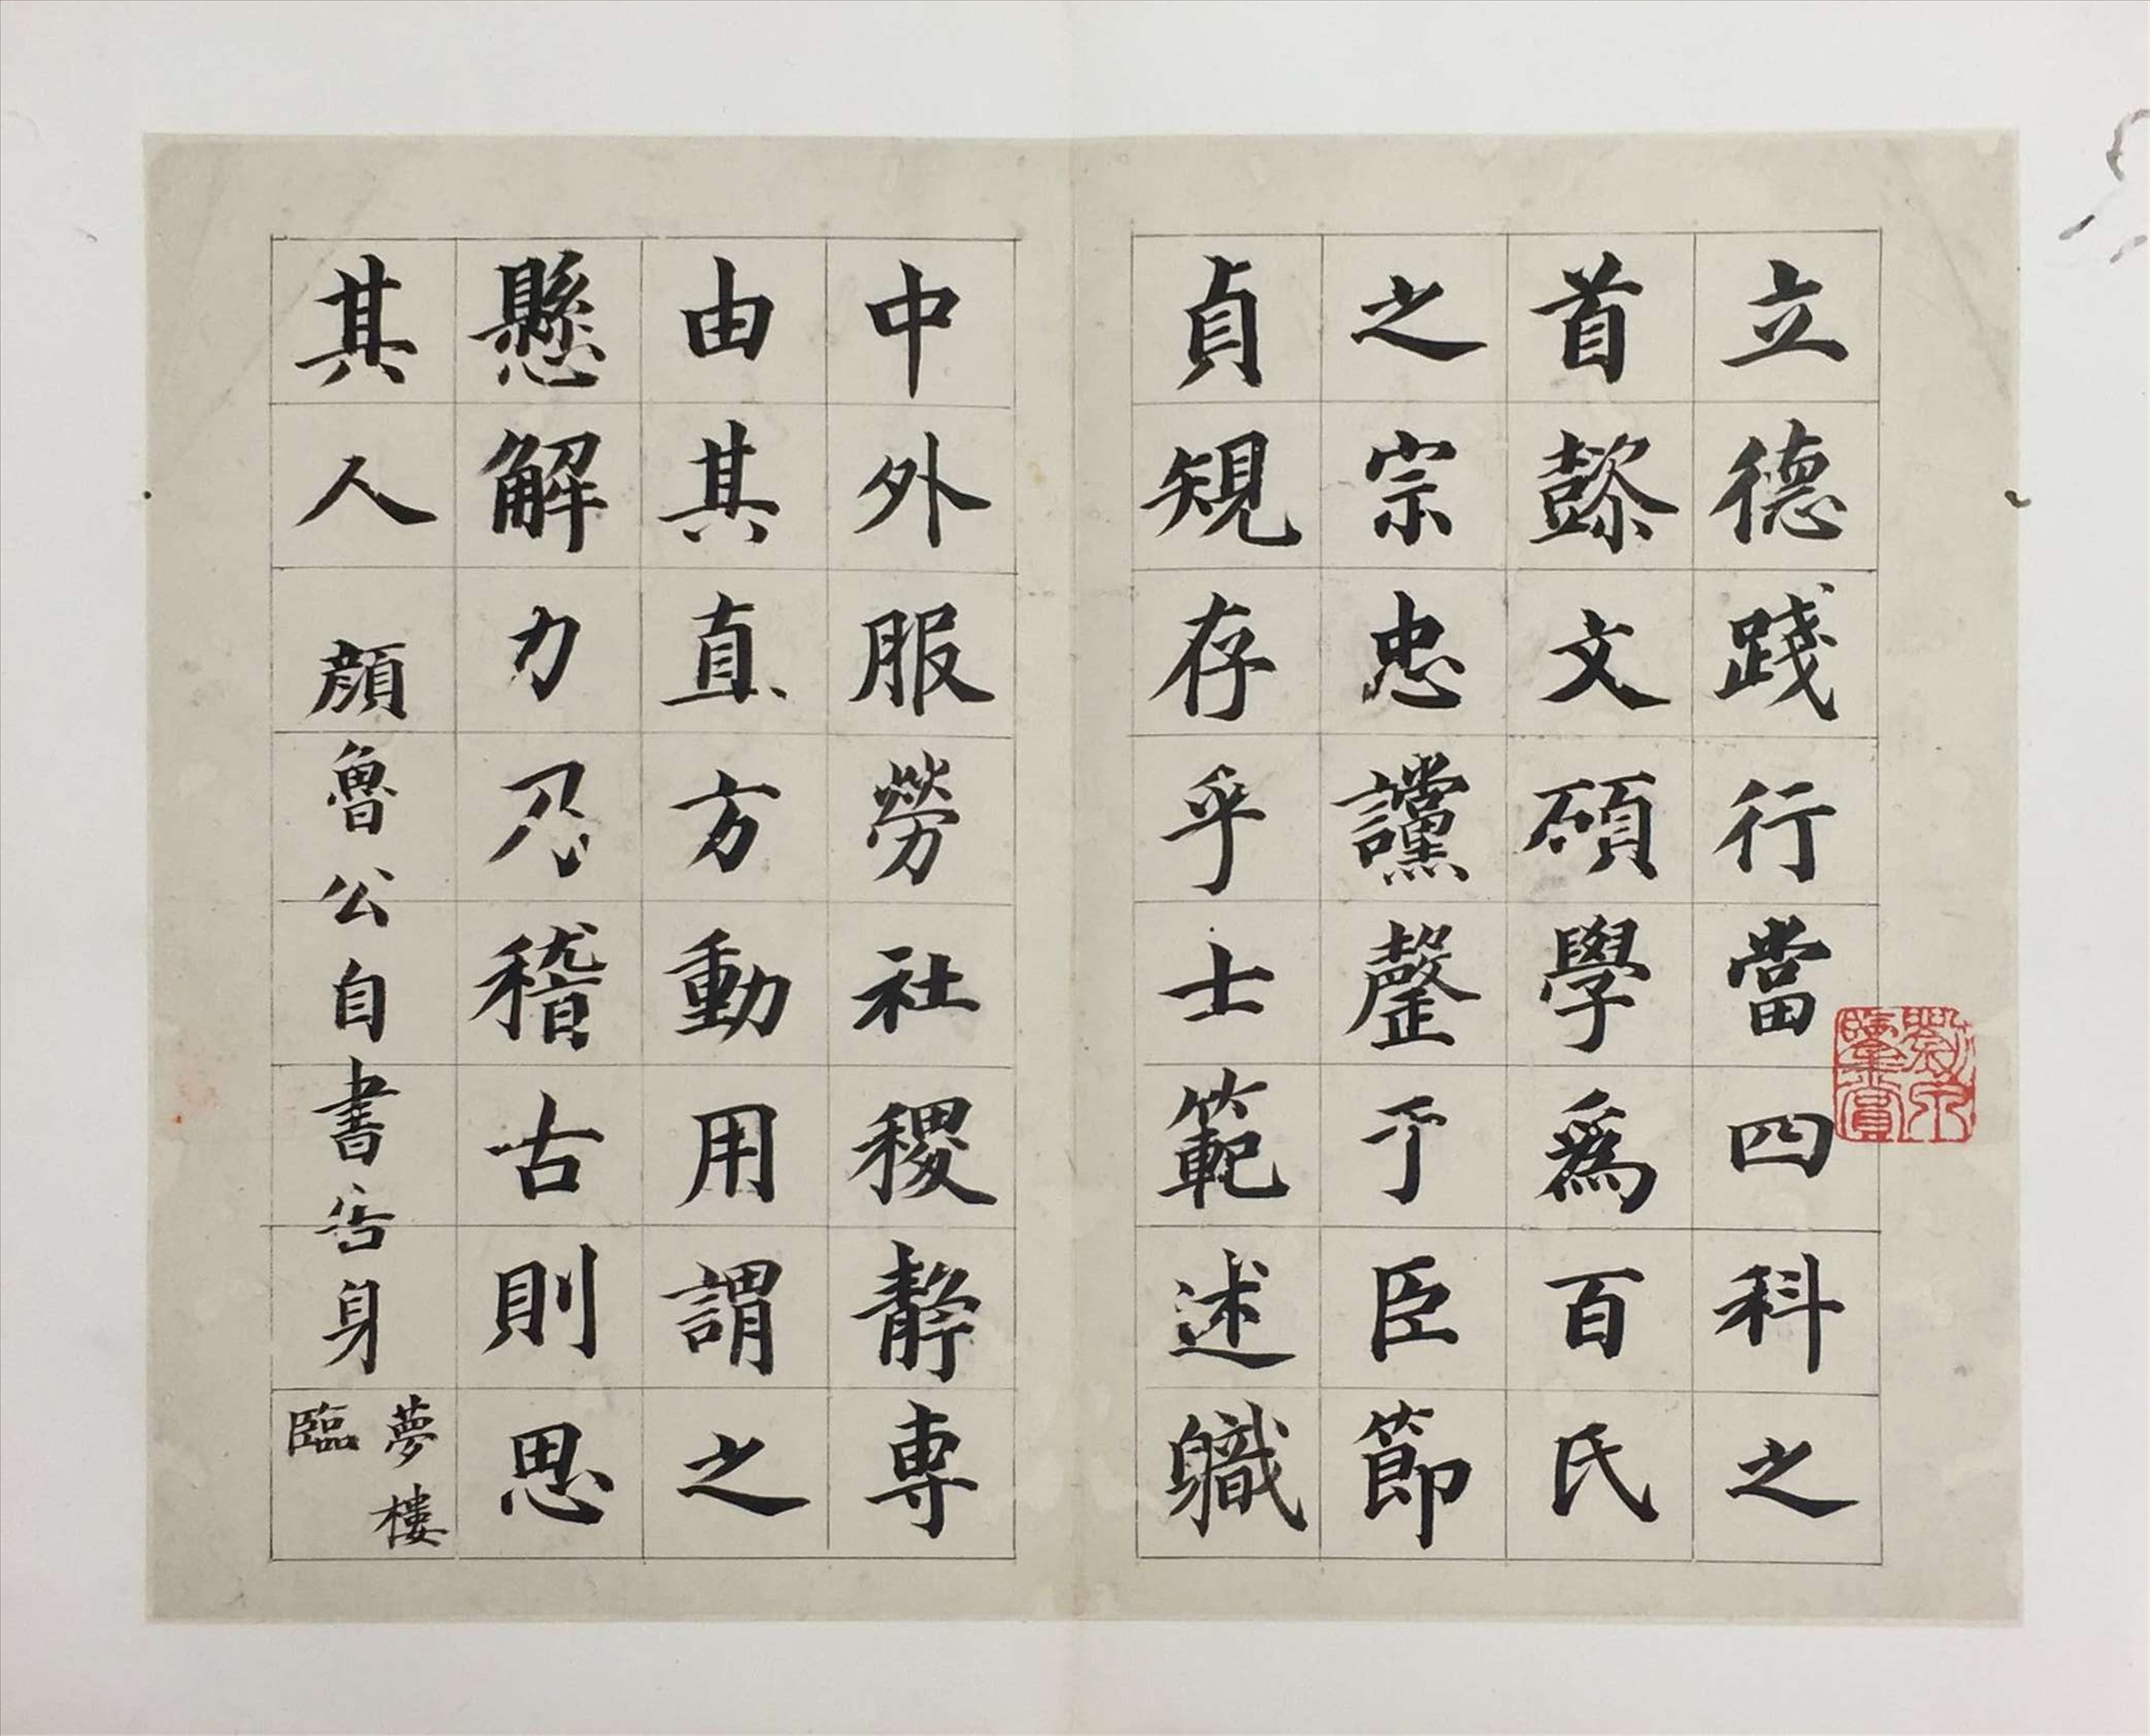 立德踐行當四科之
首懿文碩學爲百氏
之宗忠讜罄于臣節
貞規存乎士範述職
中外服勞社稷靜專
由其直方動用謂之
懸解力乃稽古則思
其人 顏魯公自書告身 夢樓臨